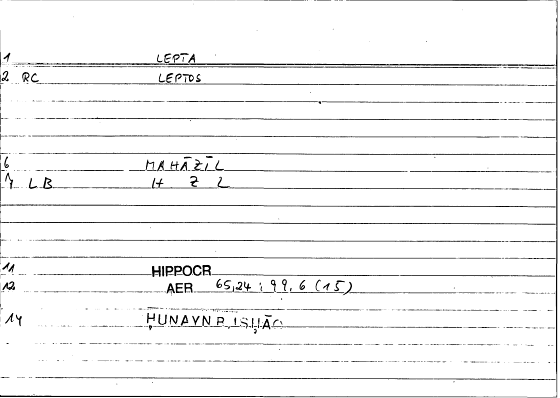 1 LEPTA
2 RC LEPTOS
6 MAHĀZĪL
7 LB H Z L
11 HIPPOCR
12 AER 65,24 : 99,6 (15)
14 ḤUNAYN B. ISḤĀQ